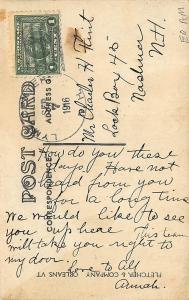 1916
Mr Charles H Flint
Lock Box 45
Nashua
N.H.
POST CARD
ADDRESS
CORRESPONDENCE
FLETCHER & COMPANY
ORLEANS VT
How do you these
days. Have not
heard from you
for a long time
We would like to see
you up here This team
will take you right to
my door.
Love to All